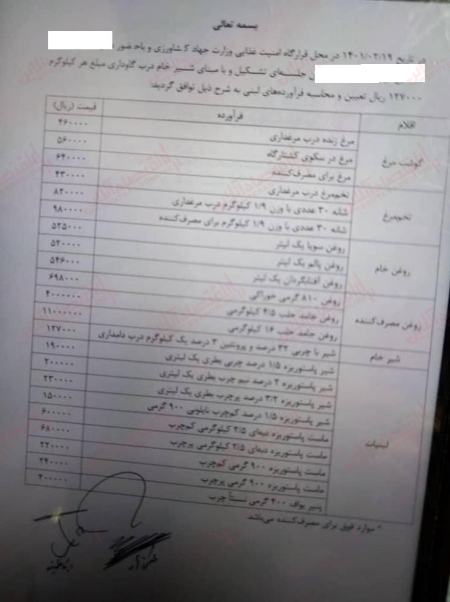 بسمه تعالی
در تاریخ ۱۴۰۱/۰۲/۱۹ در محل قرارگاه امنیت غذایی وزارت جهاد کشاورزی و باحضور
جلسه‌ای تشکیل و با مبنای شیر خام درب گاوداری مبلغ هر کیلوگرم
۱۲۷۰۰۰ ریال تعیین و محاسبه فرآورده‌های لبنی به شرح ذیل توافق گردید:
اقلام فرآورده قیمت (ریال)
گوشت مرغ مرغ زنده درب مرغداری ۴۶۰۰۰۰
مرغ در سکوی کشتارگاه ۵۶۰۰۰۰
مرغ برای مصرف‌کننده ۶۴۰۰۰۰
تخم‌مرغ تخم‌مرغ درب مرغداری ۴۳۰۰۰۰
شانه ۳۰ عددی با وزن ۱/۹ کیلوگرم درب مرغداری ۸۲۰۰۰۰
شانه ۳۰ عددی با وزن ۱/۹ کیلوگرم برای مصرف‌کننده ۹۸۰۰۰۰
روغن خام روغن سویا یک لیتر ۵۲۵۰۰۰
روغن پالم یک لیتر ۵۲۰۰۰۰
روغن آفتابگردان یک لیتر ۵۴۶۰۰۰
روغن مصرف‌کننده روغن ۸۱۰ گرمی خوراکی ۶۹۸۰۰۰
روغن جامد حلب ۴/۵ کیلوگرمی ۴۰۰۰۰۰۰
روغن جامد حلب ۱۶ کیلوگرمی ۱۱۰۰۰۰۰۰
شیر خام شیر با چربی ۳/۲ درصد و پروتئین ۳ درصد یک کیلوگرم درب دامداری ۱۲۷۰۰۰
لبنیات شیر پاستوریزه ۱/۵ درصد چربی بطری یک لیتری ۱۹۰۰۰۰
شیر پاستوریزه ۲ درصد نیم چرب بطری یک لیتری ۲۰۰۰۰۰
شیر پاستوریزه ۳/۲ درصد پرچرب بطری یک لیتری ۲۳۰۰۰۰
شیر پاستوریزه ۱/۵ درصد کم‌چرب نایلونی ۹۰۰ گرمی ۱۵۰۰۰۰
ماست پاستوریزه دبه‌ای ۲/۵ کیلوگرمی کم‌چرب ۶۰۰۰۰۰
ماست پاستوریزه دبه‌ای ۲/۵ کیلوگرمی پرچرب ۶۸۰۰۰۰
ماست پاستوریزه ۹۰۰ گرمی کم‌چرب ۲۲۰۰۰۰
ماست پاستوریزه ۹۰۰ گرمی پرچرب ۲۴۰۰۰۰
پنیر یواف ۴۰۰ گرمی نسبتاً چرب ۲۰۰۰۰۰
* موارد فوق برای مصرف‌کننده می‌باشد.